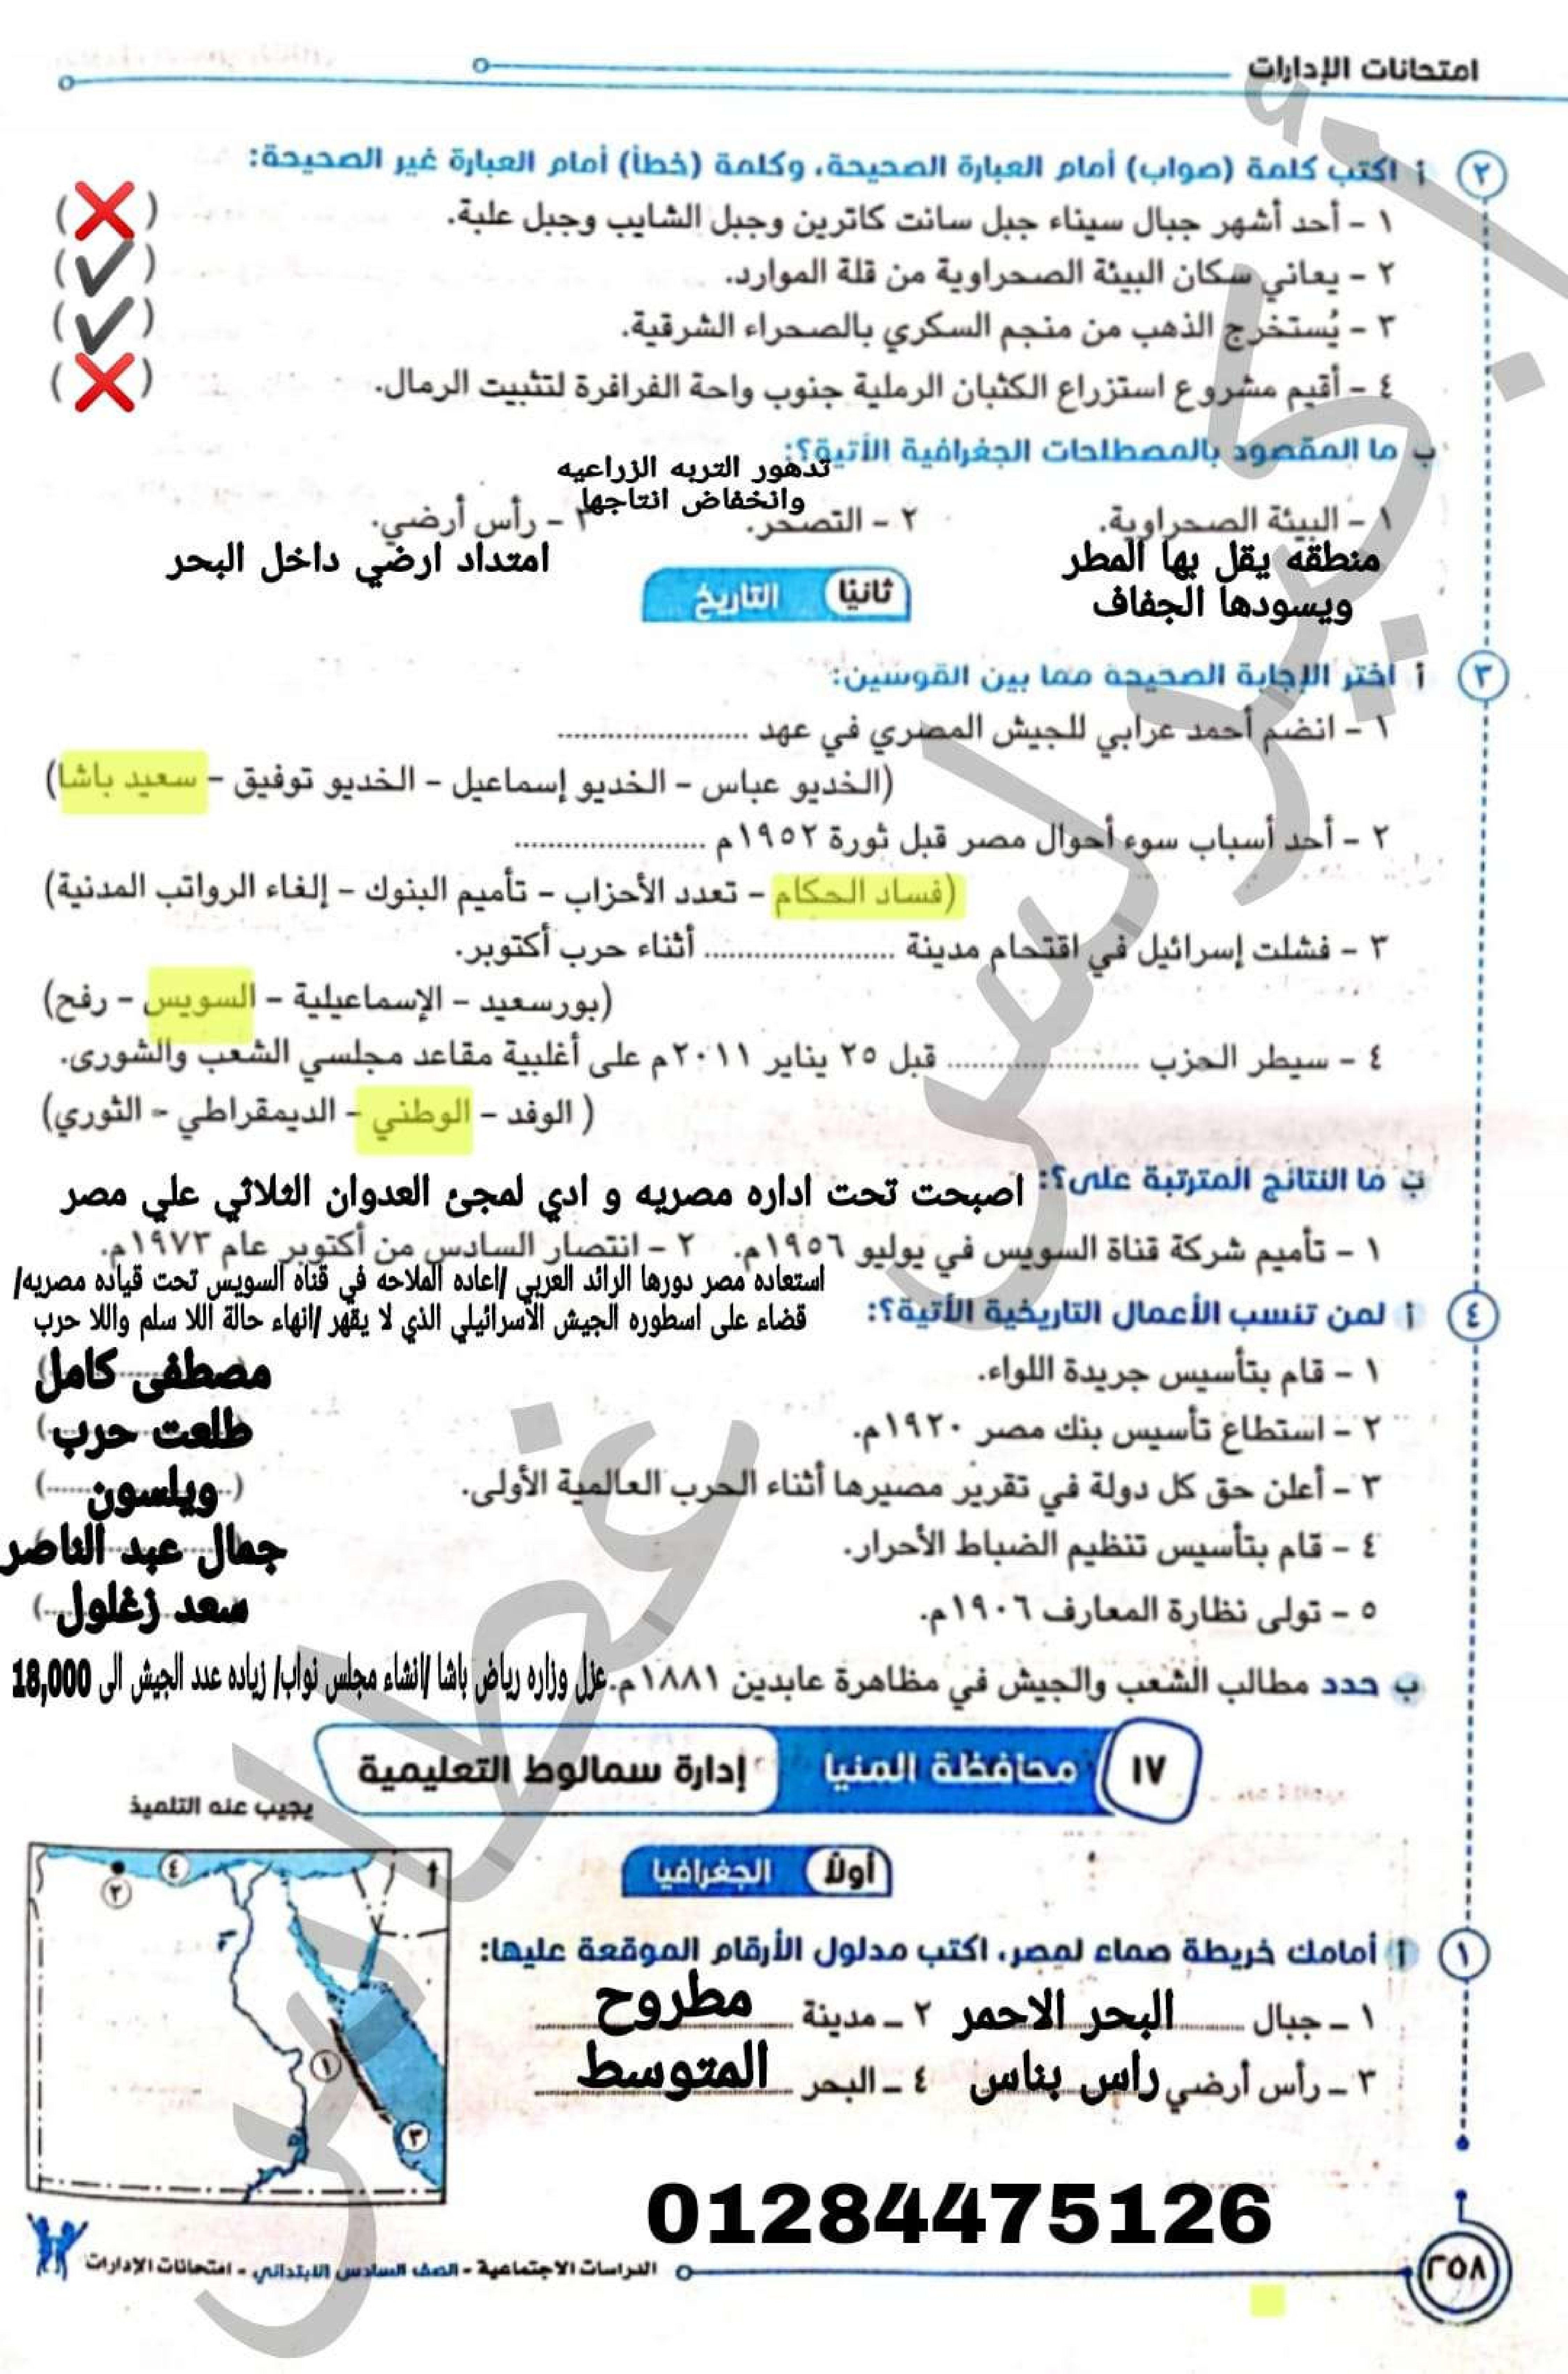 امتحانات الإدارات
٢ أ اكتب كلمة (صواب) أمام العبارة الصحيحة، وكلمة (خطأ) أمام العبارة غير الصحيحة:
١ - أحد أشهر جبال سيناء جبل سانت كاترين وجبل الشايب وجبل علبة. (❌)
٢ - يعاني سكان البيئة الصحراوية من قلة الموارد. (✔)
٣ - يُستخرج الذهب من منجم السكري بالصحراء الشرقية. (✔)
٤ - أقيم مشروع استزراع الكثبان الرملية جنوب واحة الفرافرة لتثبيت الرمال. (❌)
ب ما المقصود بالمصطلحات الجغرافية الأتية؟:
تدهور التربه الزراعيه
وانخفاض انتاجها
١ - البيئة الصحراوية. ٢ - التصحر. ٣ - رأس أرضي.
منطقه يقل بها المطر امتداد ارضي داخل البحر
ويسودها الجفاف
ثانيًا التاريخ
٣ أ اختر الإجابة الصحيحة مما بين القوسين:
١ - انضم أحمد عرابي للجيش المصري في عهد ......................
(الخديو عباس - الخديو إسماعيل - الخديو توفيق - سعيد باشا)
٢ - أحد أسباب سوء أحوال مصر قبل ثورة ١٩٥٢م ......................
(فساد الحكام - تعدد الأحزاب - تأميم البنوك - إلغاء الرواتب المدنية)
٣ - فشلت إسرائيل في اقتحام مدينة ...................... أثناء حرب أكتوبر.
(بورسعيد - الإسماعيلية - السويس - رفح)
٤ - سيطر الحزب ...................... قبل ٢٥ يناير ٢٠١١م على أغلبية مقاعد مجلسي الشعب والشورى.
( الوفد - الوطني - الديمقراطي - الثوري)
ب ما النتائج المترتبة على؟: اصبحت تحت اداره مصريه و ادي لمجئ العدوان الثلاثي علي مصر
١ - تأميم شركة قناة السويس في يوليو ١٩٥٦م. ٢ - انتصار السادس من أكتوبر عام ١٩٧٣م.
استعاده مصر دورها الرائد العربي /اعاده الملاحه في قناه السويس تحت قياده مصريه/
قضاء على اسطوره الجيش الأسرائيلي الذي لا يقهر /انهاء حالة اللا سلم واللا حرب
٤ أ لمن تنسب الأعمال التاريخية الأتية؟:
١ - قام بتأسيس جريدة اللواء. مصطفى كامل
٢ - استطاع تأسيس بنك مصر ١٩٢٠م. طلعت حرب
٣ - أعلن حق كل دولة في تقرير مصيرها أثناء الحرب العالمية الأولى. ويلسون
٤ - قام بتأسيس تنظيم الضباط الأحرار. جمال عبد الناصر
٥ - تولى نظارة المعارف ١٩٠٦م. سعد زغلول
ب حدد مطالب الشعب والجيش في مظاهرة عابدين ١٨٨١م. عزل وزاره رياض باشا /انشاء مجلس نواب/ زياده عدد الجيش الى 18,000
١٧ محافظة المنيا إدارة سمالوط التعليمية
يجيب عنه التلميذ
أولًا الجغرافيا
١ أ أمامك خريطة صماء لمصر، اكتب مدلول الأرقام الموقعة عليها:
١ - جبال البحر الاحمر ٢ - مدينة مطروح
٣ - رأس أرضي راس بناس ٤ - البحر المتوسط
٤
٢
١
٣
01284475126
الدراسات الاجتماعية - الصف السادس الابتدائي - امتحانات الإدارات
٢٥٨
أ. كيرلس غطاس